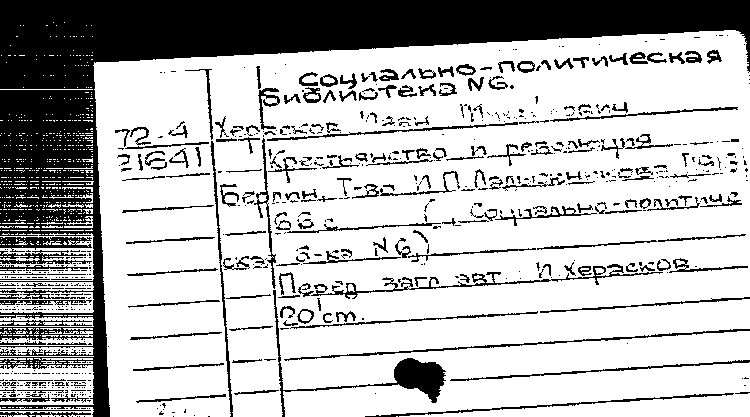 Социально-политическая
библиотека №6.
72-4 Херасков Иван
21641 Крестьянство и революция
Берлин, Т-во И.П. Ладыжникова,
66 с. (Социально-политиче
ская б-ка №6,)
Перед загл. авт.: И Херасков.
20 cm.